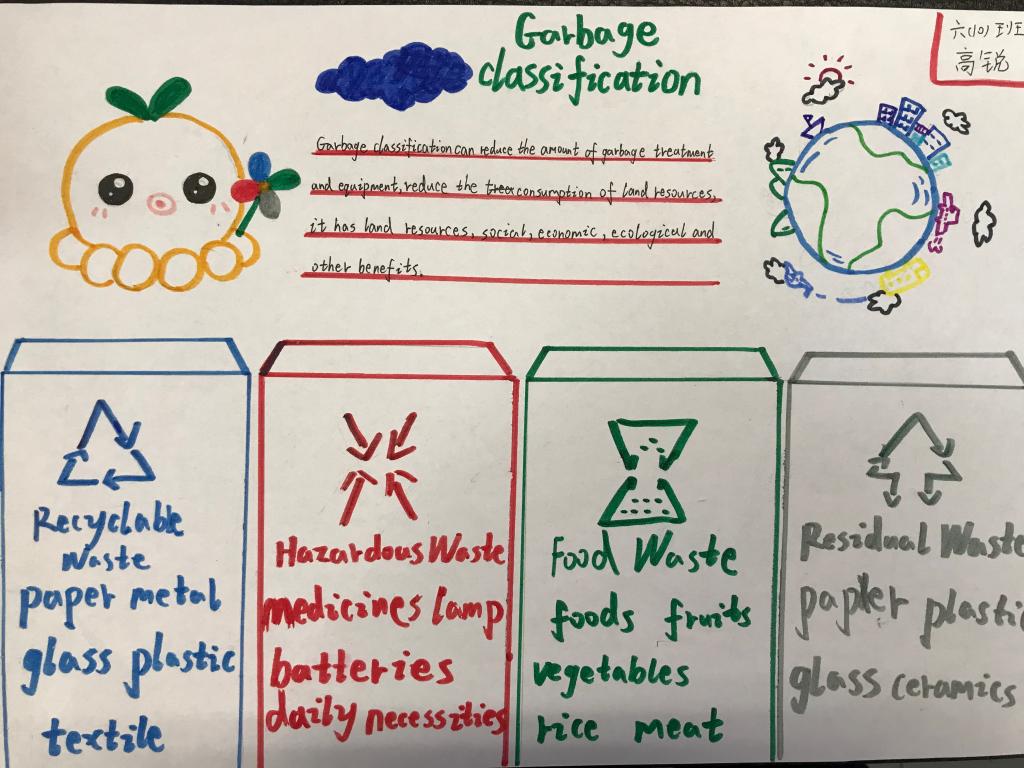 Garbage
classification
六(10)班
高锐
Garbage classification can reduce the amount of garbage treatment
and equipment, reduce the consumption of land resources,
it has land resources, social, economic, ecological and
other benefits.
Recyclable
Waste
paper metal
glass plastic
textile
Hazardous Waste
medicines lamp
batteries
daily necessities
Food Waste
foods fruits
vegetables
rice meat
Residual Waste
paper plastic
glass ceramics